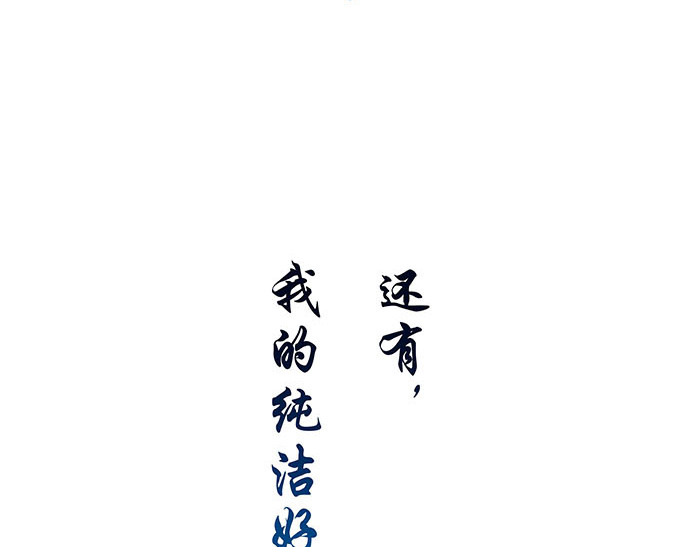 还有，
我的纯洁好